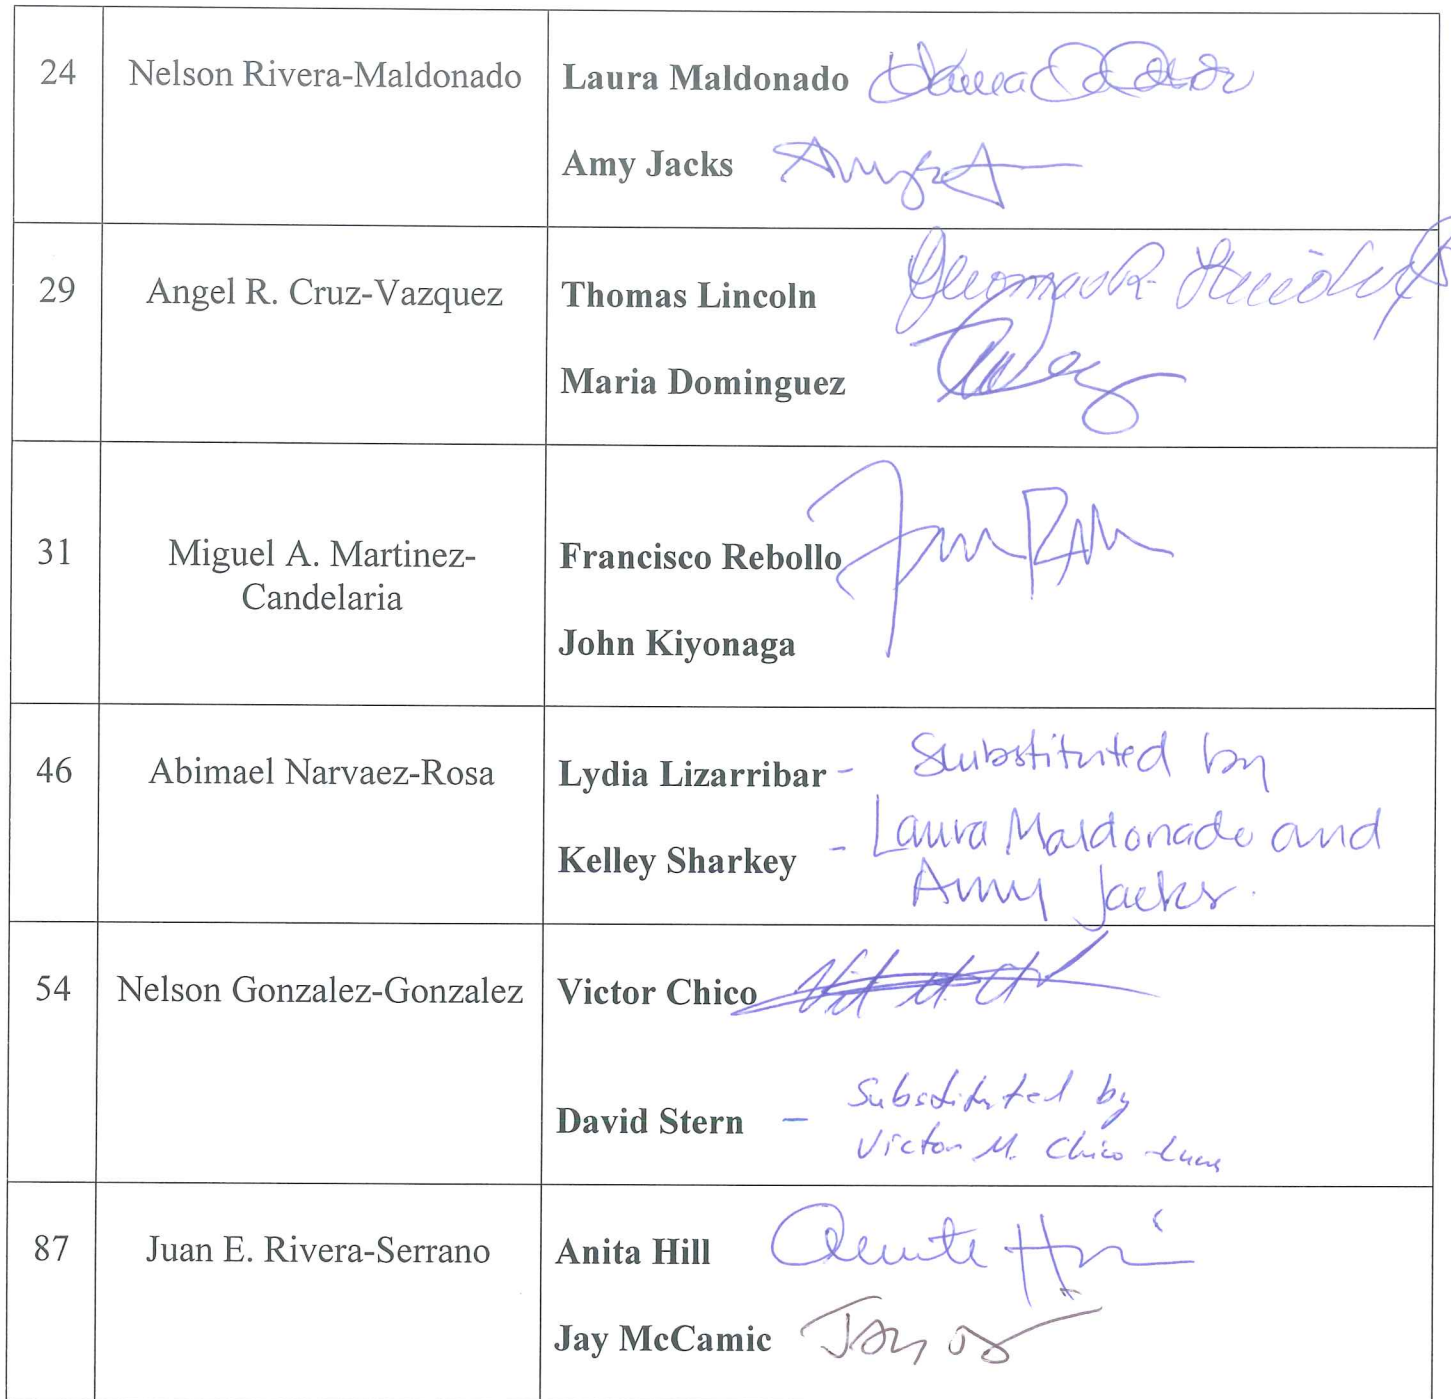 24 Nelson Rivera-Maldonado Laura Maldonado
Amy Jacks
29 Angel R. Cruz-Vazquez Thomas Lincoln
Maria Dominguez
31 Miguel A. Martinez- Francisco Rebollo
Candelaria
John Kiyonaga
46 Abimael Narvaez-Rosa Lydia Lizarribar - Substituted by
Kelley Sharkey - Laura Maldonado and
Amy Jacks.
54 Nelson Gonzalez-Gonzalez Victor Chico
David Stern - Substituted by
Victor M. Chico
87 Juan E. Rivera-Serrano Anita Hill
Jay McCamic